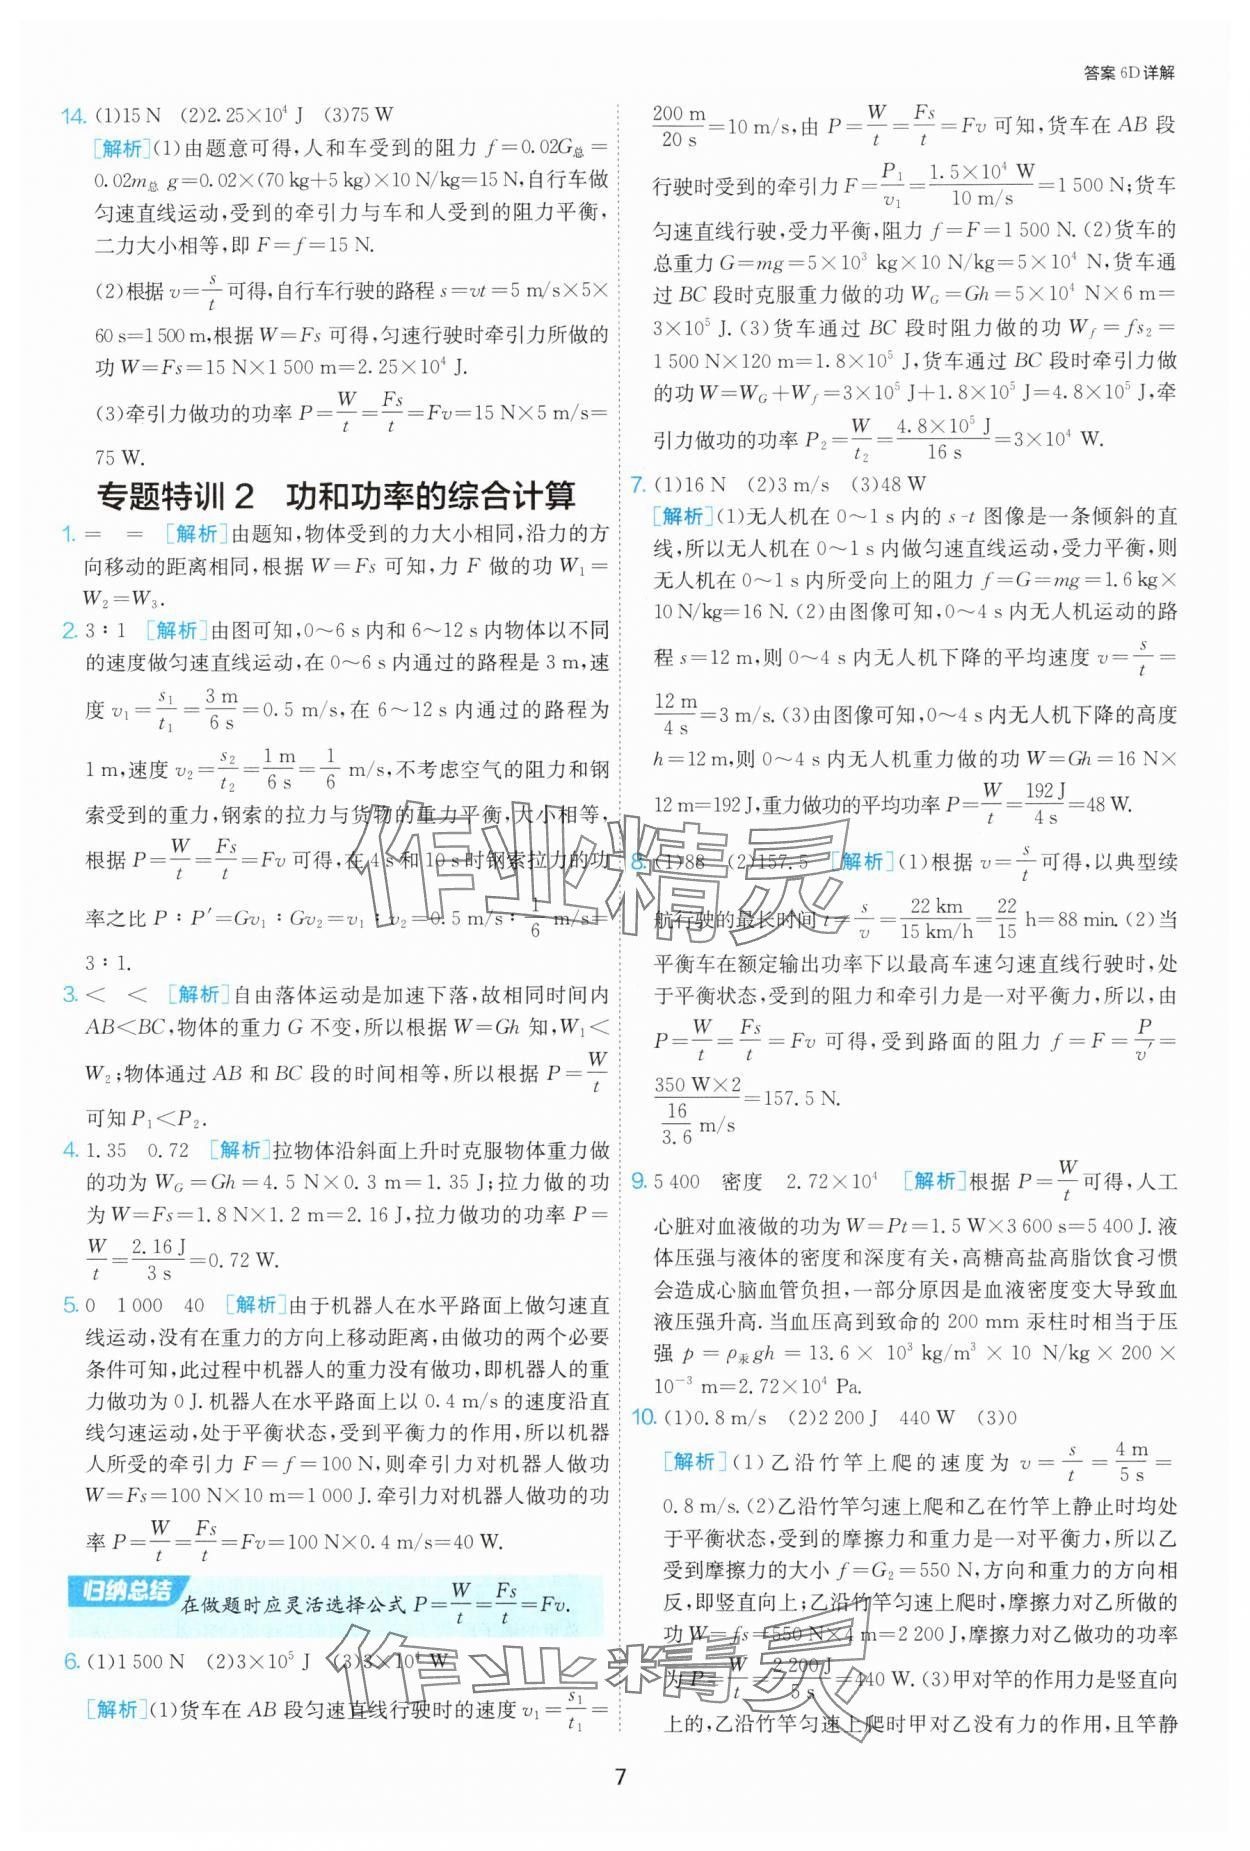 答案 6D详解
14. (1)15 N (2)2.25×10⁴ J (3)75 W
[解析](1)由题意可得,人和车受到的阻力 f=0.02G总=
0.02m总 g=0.02×(70 kg+5 kg)×10 N/kg=15 N,自行车做
匀速直线运动,受到的牵引力与车和人受到的阻力平衡,
二力大小相等,即 F=f=15 N.
(2)根据 v=s/t 可得,自行车行驶的路程 s=vt=5 m/s×5×
60 s=1 500 m,根据 W=Fs 可得,匀速行驶时牵引力所做的
功 W=Fs=15 N×1 500 m=2.25×10⁴ J.
(3)牵引力做功的功率 P=W/t=Fs/t=Fv=15 N×5 m/s=
75 W.
专题特训 2 功和功率的综合计算
1. = = [解析]由题知,物体受到的力大小相同,沿力的方
向移动的距离相同,根据 W=Fs 可知,力 F 做的功 W₁=
W₂=W₃.
2. 3∶1 [解析]由图可知,0～6 s内和 6～12 s内物体以不同
的速度做匀速直线运动,在 0～6 s内通过的路程是 3 m,速
度 v₁=s₁/t₁=3 m/6 s=0.5 m/s,在 6～12 s内通过的路程为
1 m,速度 v₂=s₂/t₂=1 m/6 s=1/6 m/s,不考虑空气的阻力和钢
索受到的重力,钢索的拉力与货物的重力平衡,大小相等,
根据 P=W/t=Fs/t=Fv 可得,在 4 s和 10 s时钢索拉力的功
率之比 P∶P′=Gv₁∶Gv₂=v₁∶v₂=0.5 m/s∶1/6 m/s=
3∶1.
3. < < [解析]自由落体运动是加速下落,故相同时间内
AB<BC,物体的重力 G 不变,所以根据 W=Gh 知,W₁<
W₂;物体通过 AB 和 BC 段的时间相等,所以根据 P=W/t
可知 P₁<P₂.
4. 1.35 0.72 [解析]拉物体沿斜面上升时克服物体重力做
的功为 W_G=Gh=4.5 N×0.3 m=1.35 J;拉力做的功
为 W=Fs=1.8 N×1.2 m=2.16 J,拉力做功的功率 P=
W/t=2.16 J/3 s=0.72 W.
5. 0 1 000 40 [解析]由于机器人在水平路面上做匀速直
线运动,没有在重力的方向上移动距离,由做功的两个必要
条件可知,此过程中机器人的重力没有做功,即机器人的重
力做功为 0 J.机器人在水平路面上以 0.4 m/s 的速度沿直
线匀速运动,处于平衡状态,受到平衡力的作用,所以机器
人所受的牵引力 F=f=100 N,则牵引力对机器人做功
W=Fs=100 N×10 m=1 000 J.牵引力对机器人做功的功
率 P=W/t=Fs/t=Fv=100 N×0.4 m/s=40 W.
归纳总结 在做题时应灵活选择公式 P=W/t=Fs/t=Fv.
6. (1)1 500 N (2)3×10⁵ J (3)3×10⁴ W
[解析](1)货车在 AB 段匀速直线行驶时的速度 v₁=s₁/t₁=
200 m/20 s=10 m/s,由 P=W/t=Fs/t=Fv 可知,货车在 AB 段
行驶时受到的牵引力 F=P₁/v₁=1.5×10⁴ W/10 m/s=1 500 N;货车
匀速直线行驶,受力平衡,阻力 f=F=1 500 N.(2)货车的
总重力 G=mg=5×10³ kg×10 N/kg=5×10⁴ N,货车通
过 BC 段时克服重力做的功 W_G=Gh=5×10⁴ N×6 m=
3×10⁵ J.(3)货车通过 BC 段时阻力做的功 W_f=fs₂=
1 500 N×120 m=1.8×10⁵ J,货车通过 BC 段时牵引力做
的功 W=W_G+W_f=3×10⁵ J+1.8×10⁵ J=4.8×10⁵ J,牵
引力做功的功率 P₂=W/t₂=4.8×10⁵ J/16 s=3×10⁴ W.
7. (1)16 N (2)3 m/s (3)48 W
[解析](1)无人机在 0～1 s内的 s-t 图像是一条倾斜的直
线,所以无人机在 0～1 s内做匀速直线运动,受力平衡,则
无人机在 0～1 s内所受向上的阻力 f=G=mg=1.6 kg×
10 N/kg=16 N.(2)由图像可知,0～4 s内无人机运动的路
程 s=12 m,则 0～4 s内无人机下降的平均速度 v=s/t=
12 m/4 s=3 m/s.(3)由图像可知,0～4 s内无人机下降的高度
h=12 m,则 0～4 s内无人机重力做的功 W=Gh=16 N×
12 m=192 J,重力做功的平均功率 P=W/t=192 J/4 s=48 W.
8. (1)88 (2)157.5 [解析](1)根据 v=s/t 可得,以典型续
航行驶的最长时间 t=s/v=22 km/15 km/h=22/15 h=88 min.(2)当
平衡车在额定输出功率下以最高车速匀速直线行驶时,处
于平衡状态,受到的阻力和牵引力是一对平衡力,所以,由
P=W/t=Fs/t=Fv 可得,受到路面的阻力 f=F=P/v′=
350 W×2/(16/3.6 m/s)=157.5 N.
9. 5 400 密度 2.72×10⁴ [解析]根据 P=W/t可得,人工
心脏对血液做的功为 W=Pt=1.5 W×3 600 s=5 400 J.液
体压强与液体的密度和深度有关,高糖高盐高脂饮食习惯
会造成心脑血管负担,一部分原因是血液密度变大导致血
液压强升高.当血压高到致命的 200 mm 汞柱时相当于压
强 p=ρ汞gh=13.6×10³ kg/m³×10 N/kg×200×
10⁻³ m=2.72×10⁴ Pa.
10. (1)0.8 m/s (2)2 200 J 440 W (3)0
[解析](1)乙沿竹竿上爬的速度为 v=s/t=4 m/5 s=
0.8 m/s.(2)乙沿竹竿匀速上爬和乙在竹竿上静止时均处
于平衡状态,受到的摩擦力和重力是一对平衡力,所以乙
受到摩擦力的大小 f=G₂=550 N,方向和重力的方向相
反,即竖直向上;乙沿竹竿匀速上爬时,摩擦力对乙所做的
功 W=fs=550 N×4 m=2 200 J,摩擦力对乙做功的功率
为 P=W/t=2 200 J/5 s=440 W.(3)甲对竿的作用力是竖直向
上的,乙沿竹竿匀速上爬时甲对乙没有力的作用,且竿静
作业精灵
作业精灵
7